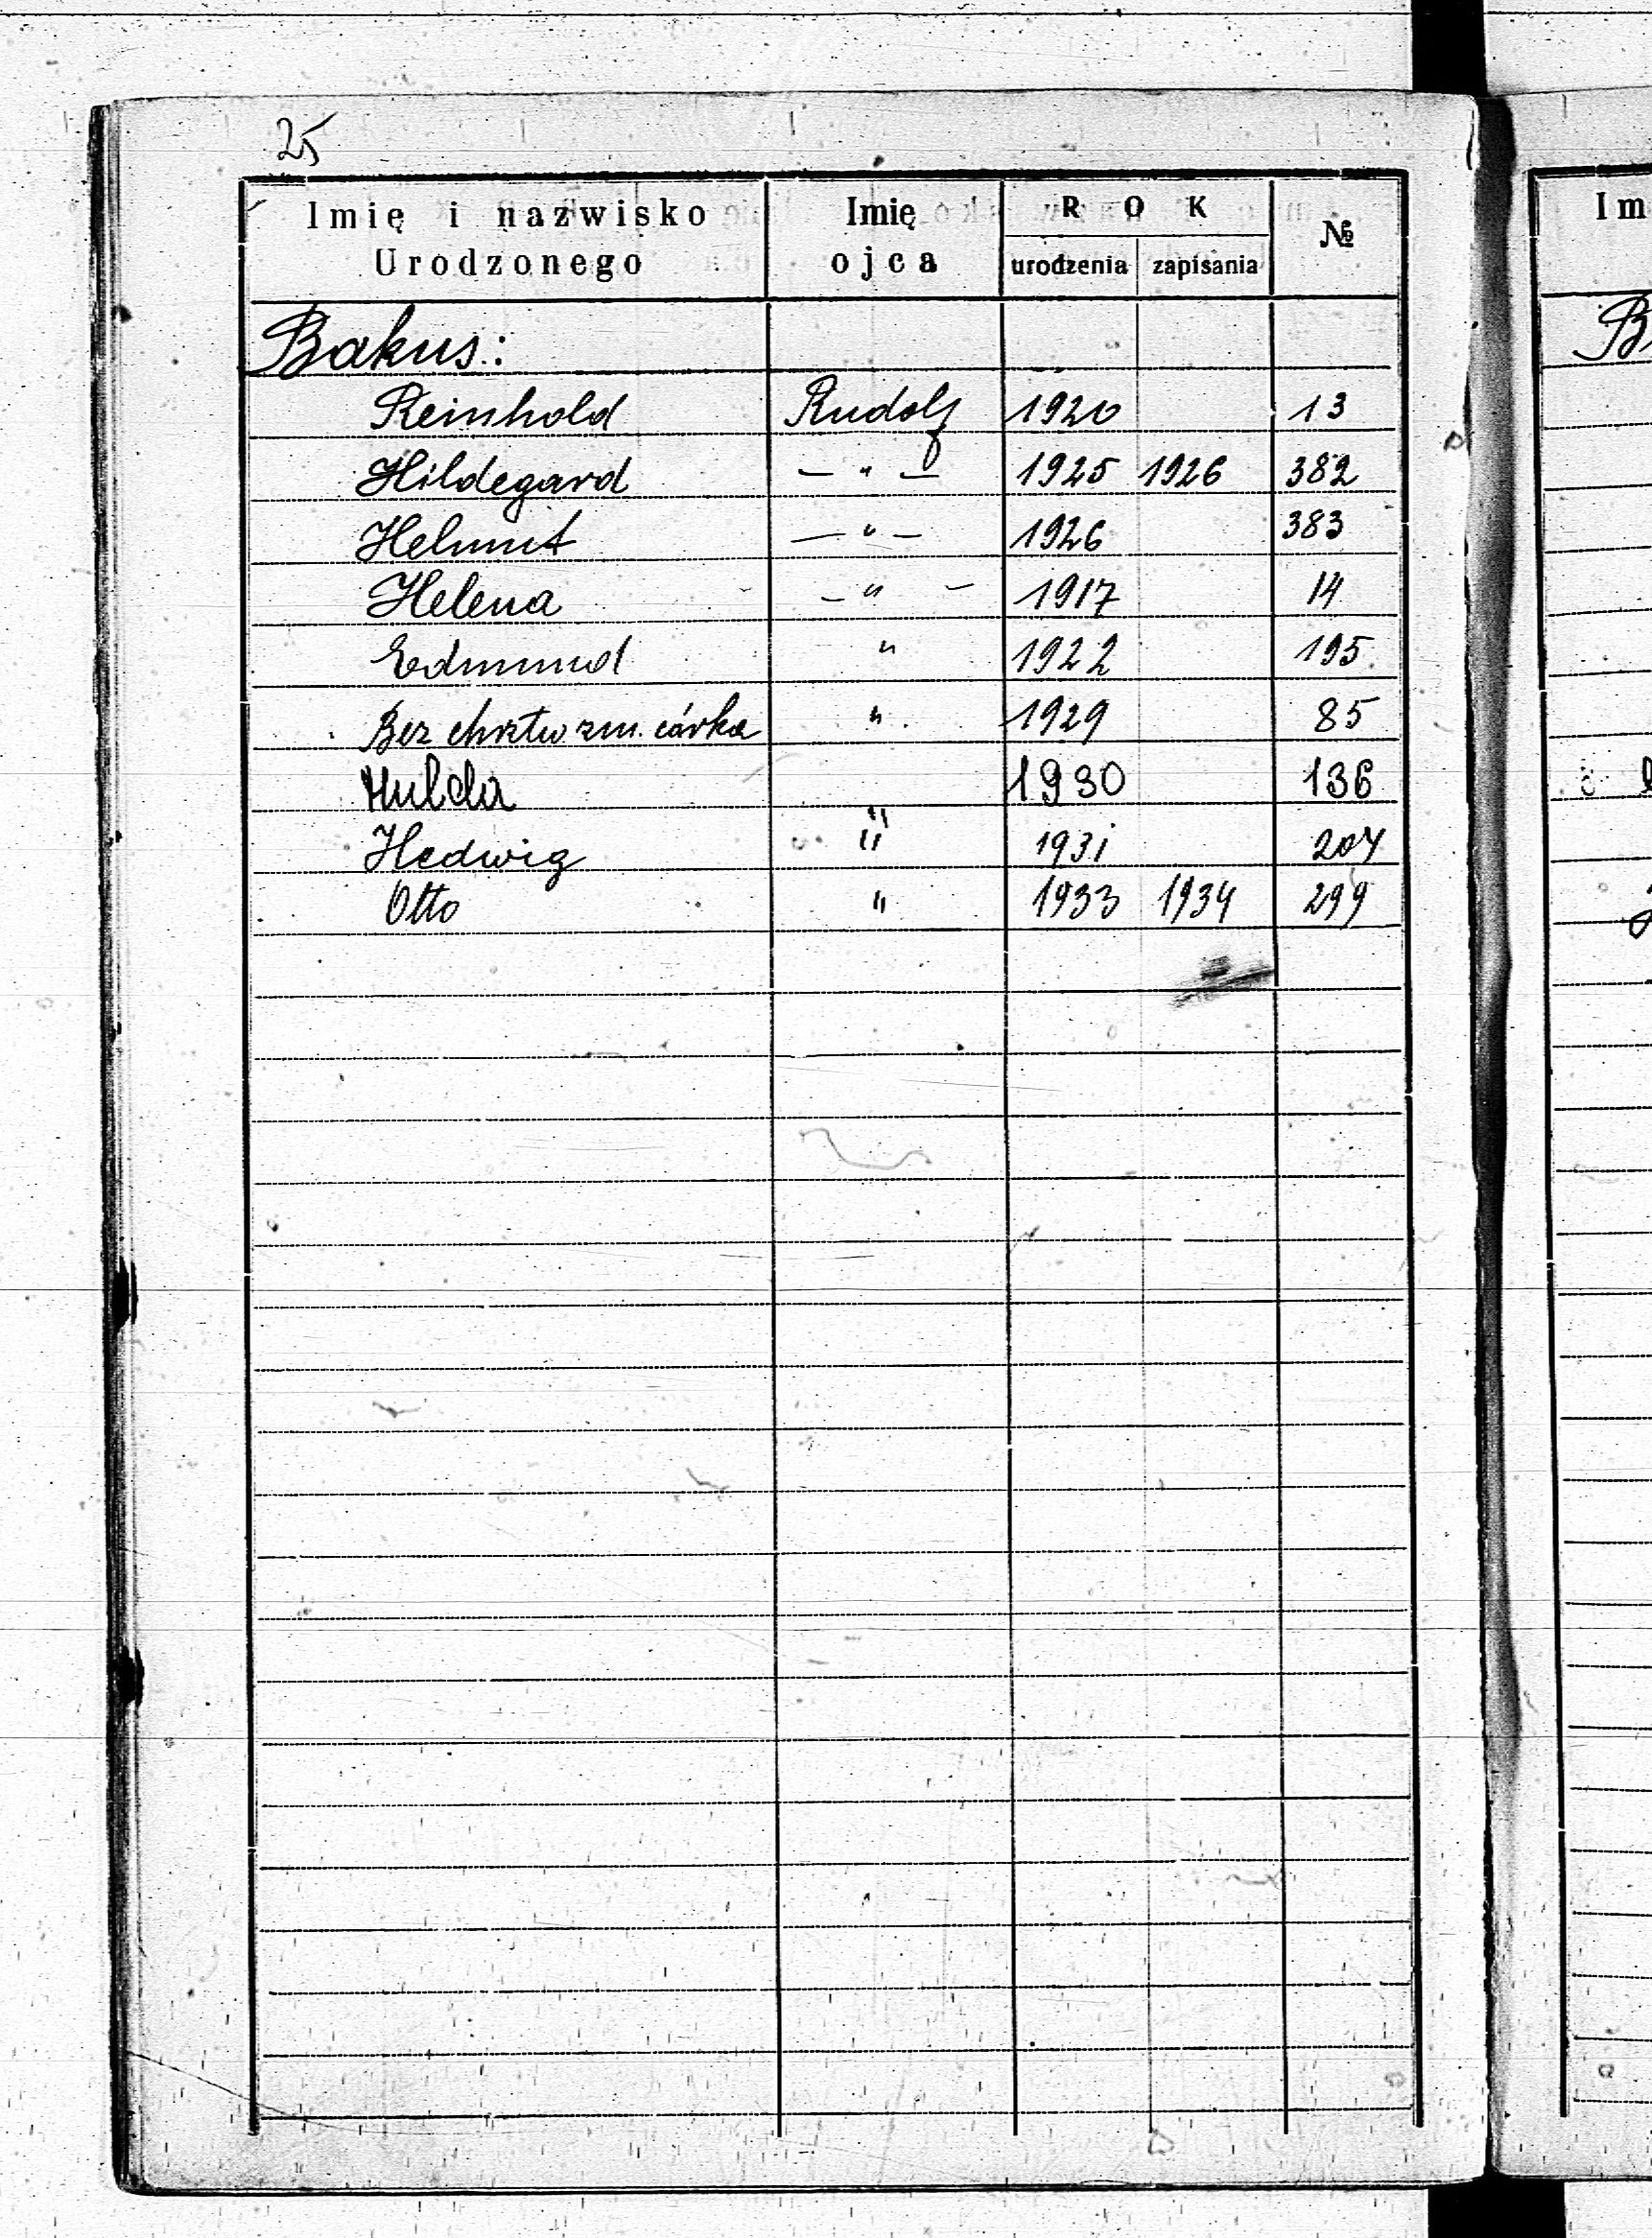 25
Imię i nazwisko Urodzonego Imię ojca ROK urodzenia zapisania №
Bakus:
Reinhold Rudolf 1920 13
Hildegard — " — 1925 1926 382
Helmut — " — 1926 383
Helena — " — 1917 14
Edmund " 1922 195
Bez chrztu zm. córka " 1929 85
Hulda " 1930 136
Hedwig " 1931 204
Otto " 1933 1934 299
Im